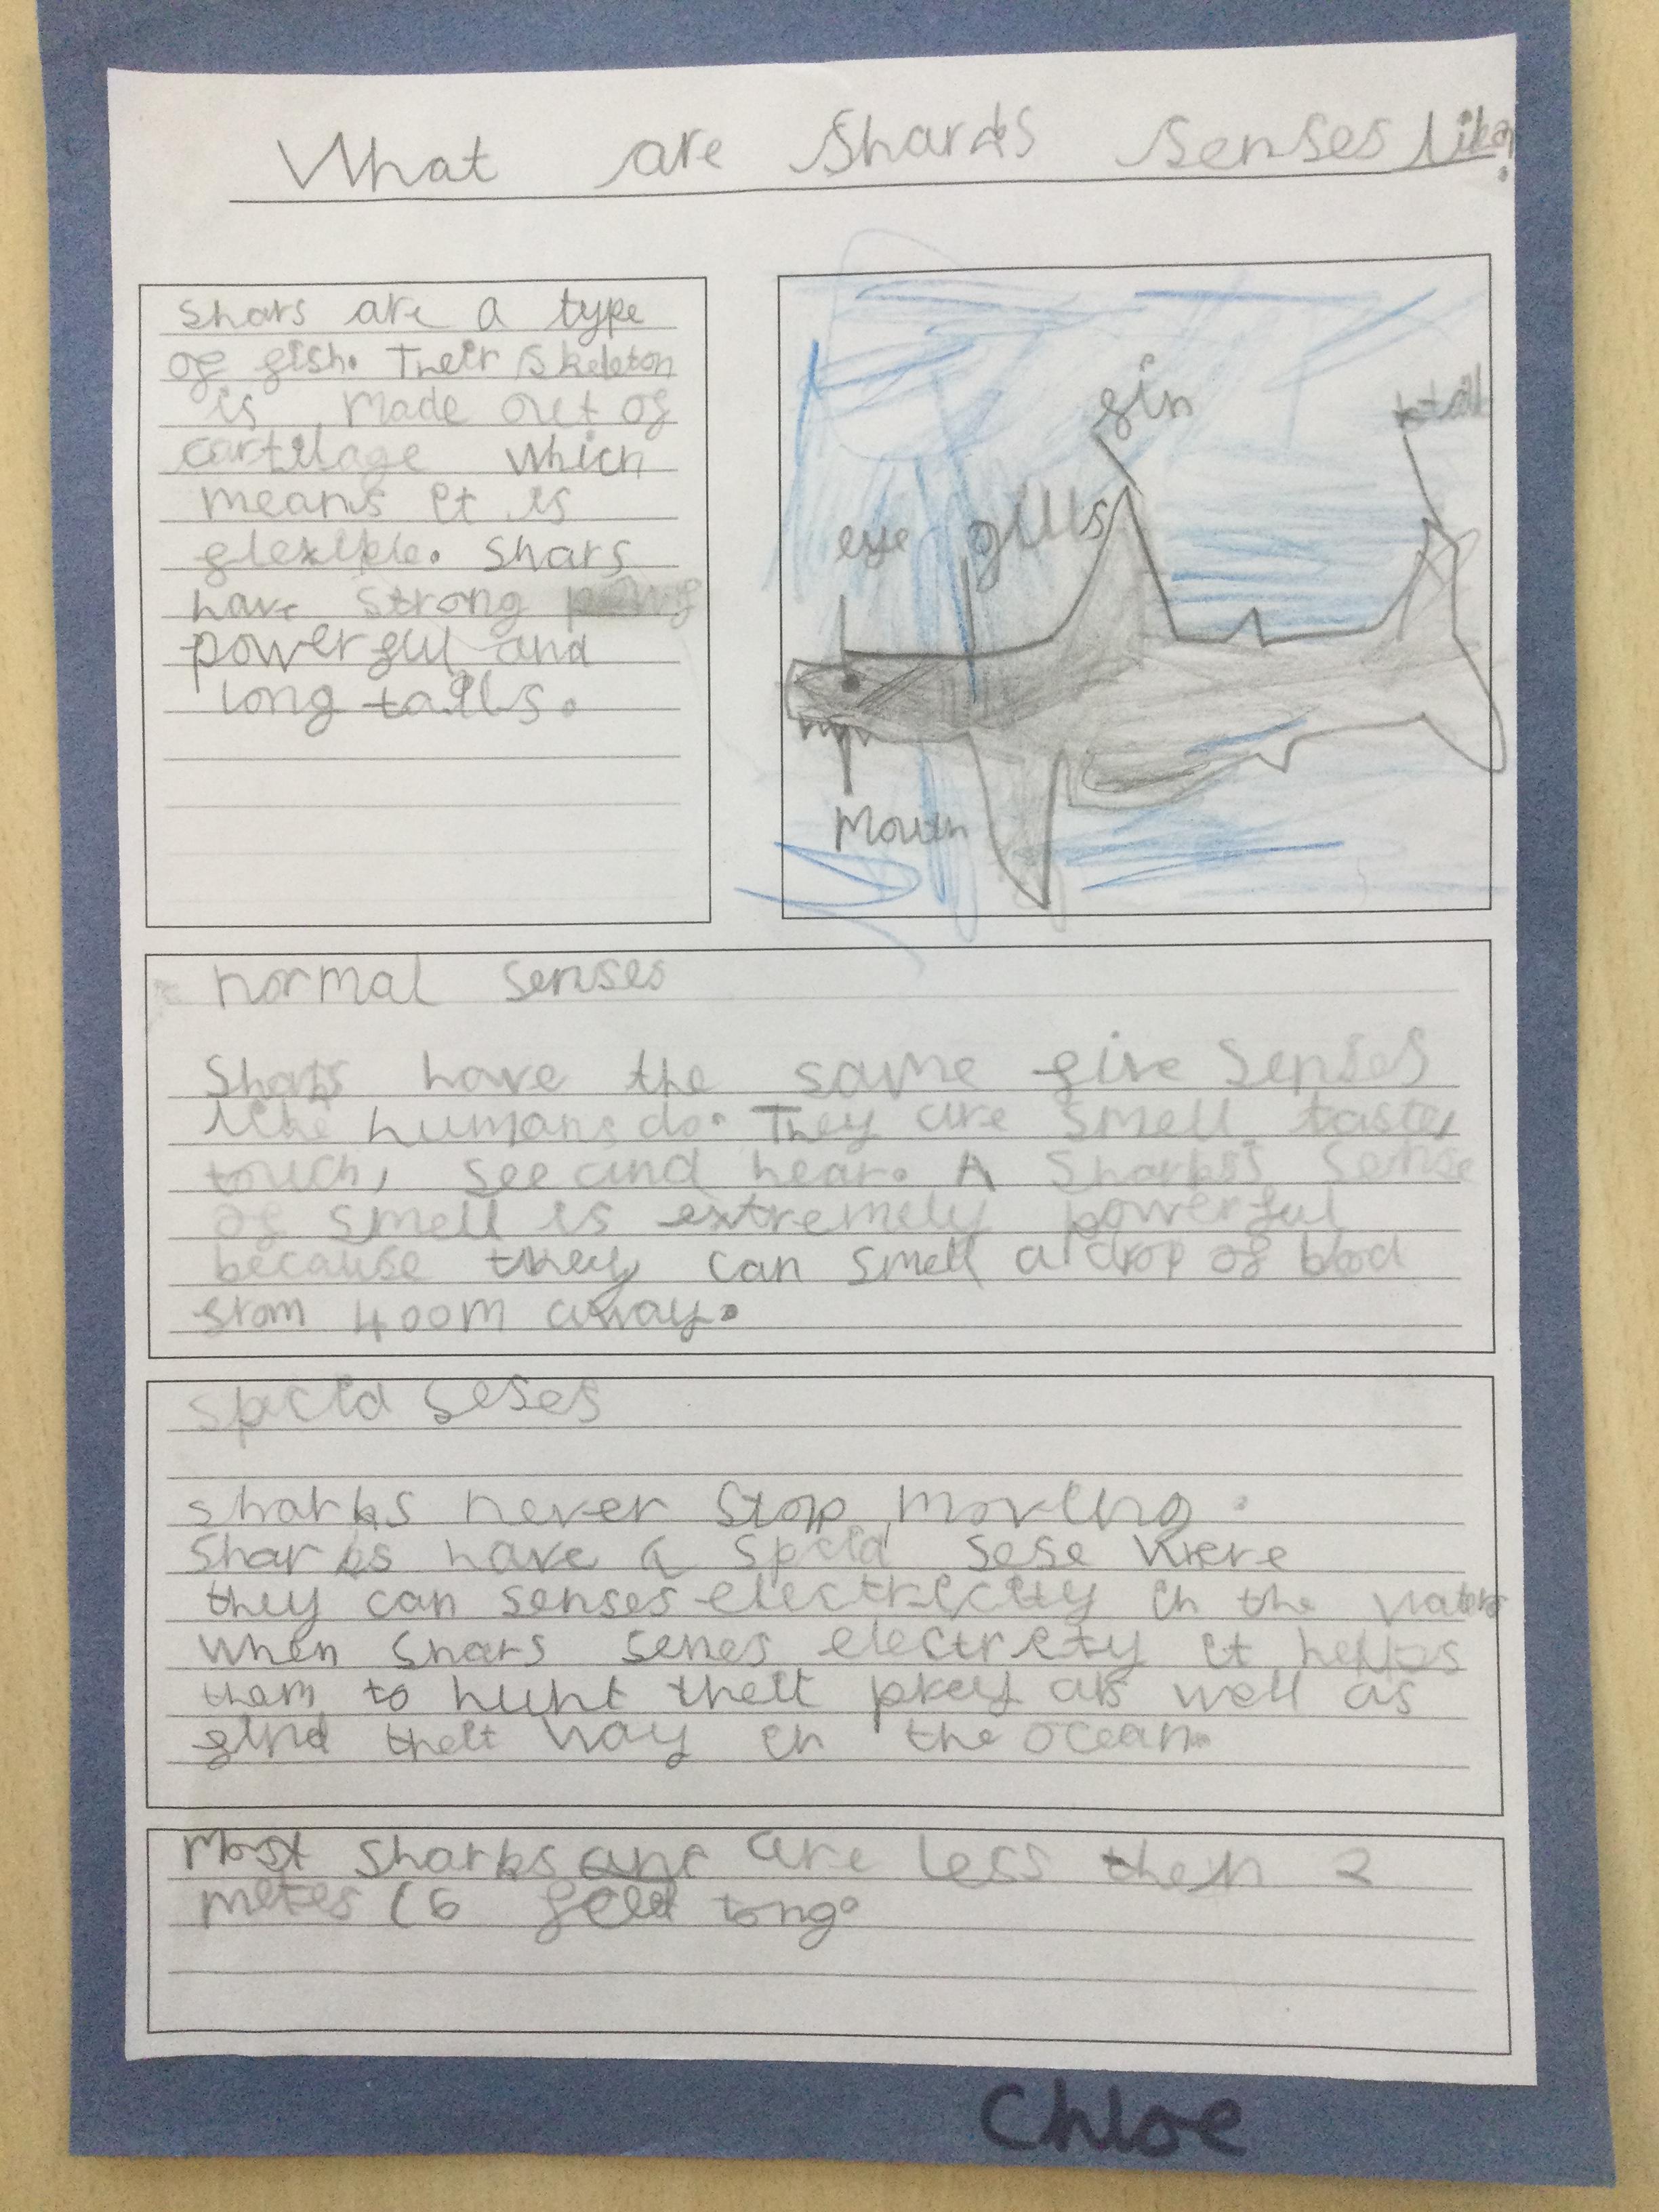 What are Sharks senses like?
Shars are a type
of fish. Their skeleton
is made out of
cartilage which
means it is
flexible. Shars
have strong
powerful and
long tails.
fin
tail
eye gills
Mouth
normal senses
Sharks have the same five senses
like humans do. They are smell, taste,
touch, see and hear. A Shark's sense
of smell is extremely powerful
because they can smell a drop of blood
from 400m away.
special seses
sharks never stop moving.
Sharks have a special sese where
they can senses electricity in the
when shars senes electrity it helps
them to hunt theit prey as well as
find theit way in the ocean.
Most sharks are less then 2
metes (6 feet long.
Chloe